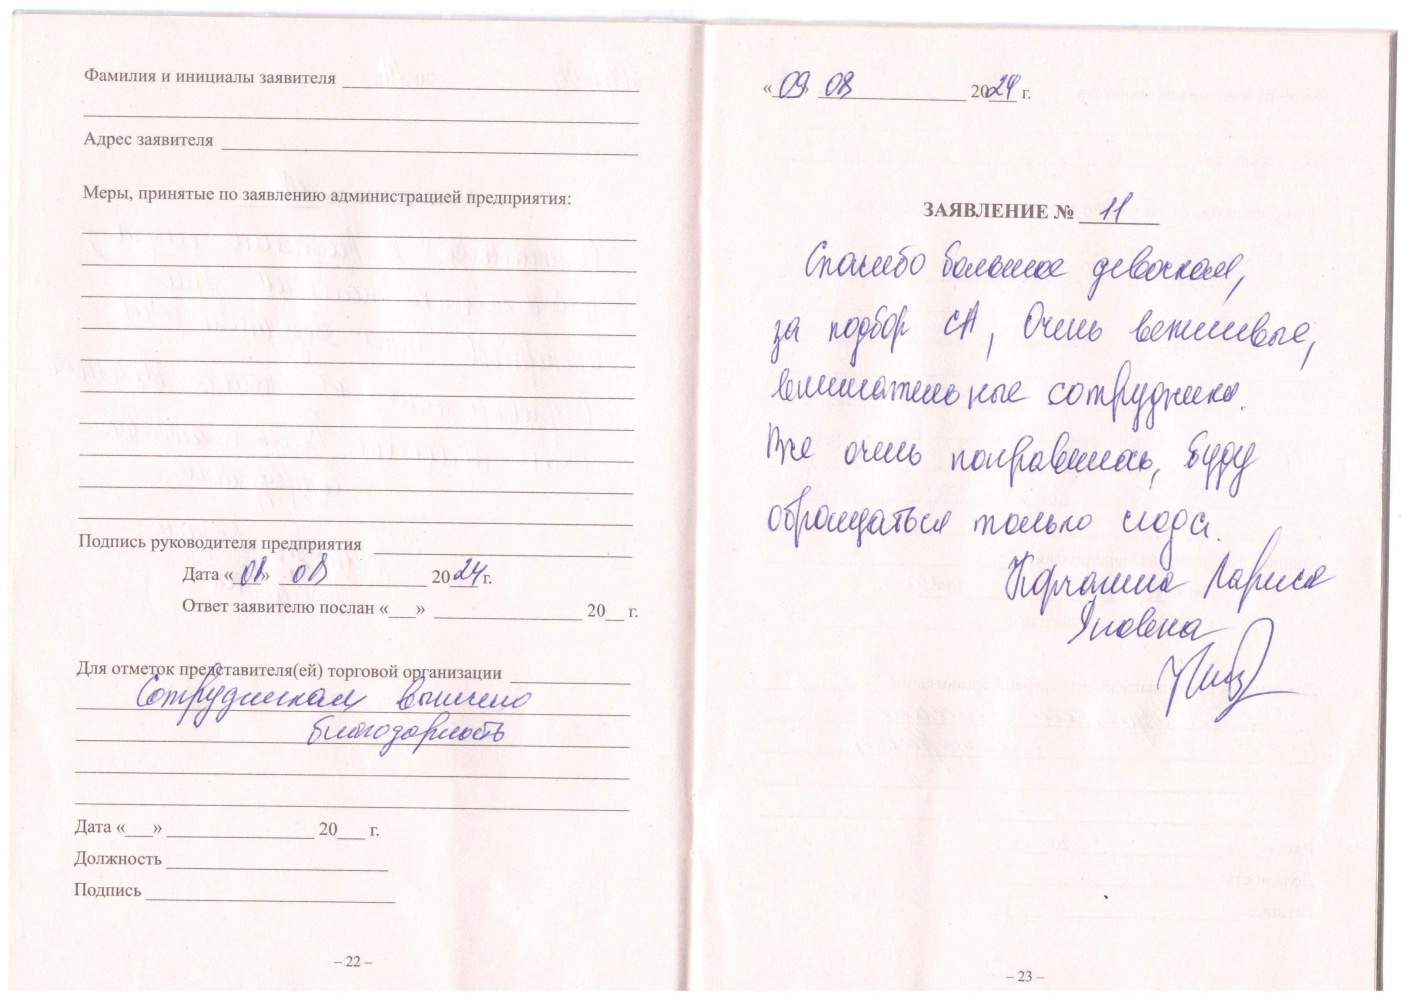 Фамилия и инициалы заявителя
Адрес заявителя
Меры, принятые по заявлению администрацией предприятия:
Подпись руководителя предприятия
Дата «08» 08 2024 г.
Ответ заявителю послан «___» 20__ г.
Для отметок представителя(ей) торговой организации
Сотрудникам вынесено
благодарность
Дата «___» 20___ г.
Должность
Подпись
– 22 –
«09» 08 2024 г.
ЗАЯВЛЕНИЕ № 11
Спасибо большое девочкам,
за подбор СА, Очень вежливые,
внимательные сотрудники.
Все очень понравилось, буду
обращаться только сюда.
Лариса
– 23 –